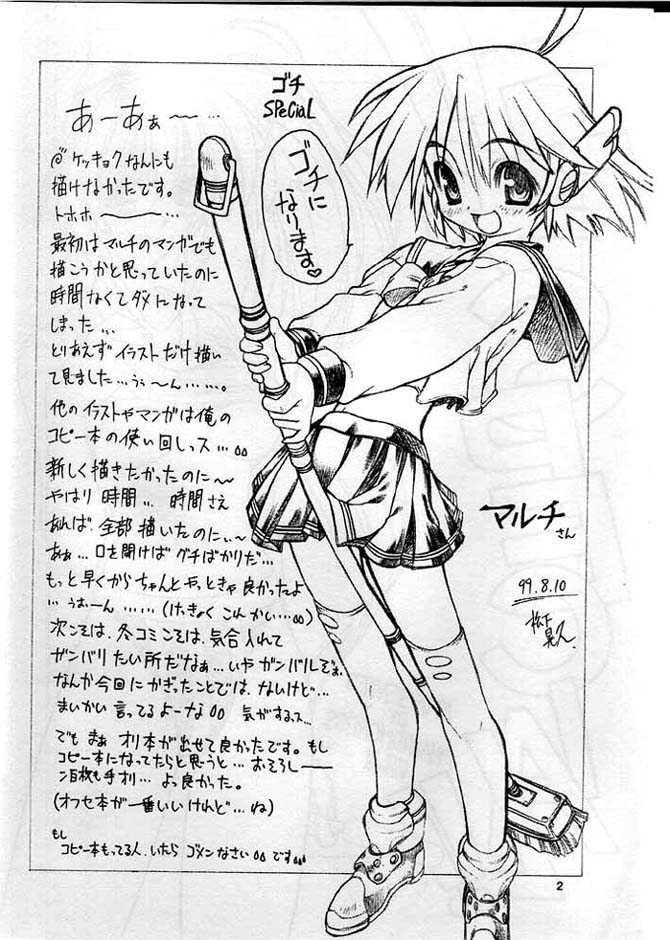 ゴチ
SPeCiaL
あーあぁ〜…
ケッキョクなんにも
描けなかったです。
トホホ〜…
最初はマルチのマンガでも
描こうかと思っていたのに
時間なくてダメになって
しまった…
とりあえずイラストだけ描い
て見ました…うぅ〜ん……。
他のイラストやマンガは俺の
コピー本の使い回しっス…
新しく描きたかったのに〜
やはり時間… 時間さえ
あれば、全部描いたのにぃ〜
あぁ…口を開けばグチばかりだ…
もっと早くからちゃんとやっときゃ良かったよ
…うおーん……(けっきょくこんかい…)
次こそは、冬コミこそは、気合入れて
ガンバリたい所だなぁ…いやガンバルぞぉ
なんか今回にかぎったことでは、ないけど…
まいかい言ってるよーな 気がするっス…
でもまぁ オリ本が出せて良かったです。もし
コピー本になってたらと思うと…おそろしー
百枚も手オリ… よっ良かった。
(オフセ本が一番いいけれど…ね)
もし
コピー本もってる人、いたら ゴメンなさい です
ゴチに
なります♡
マルチ
さん
99.8.10
2